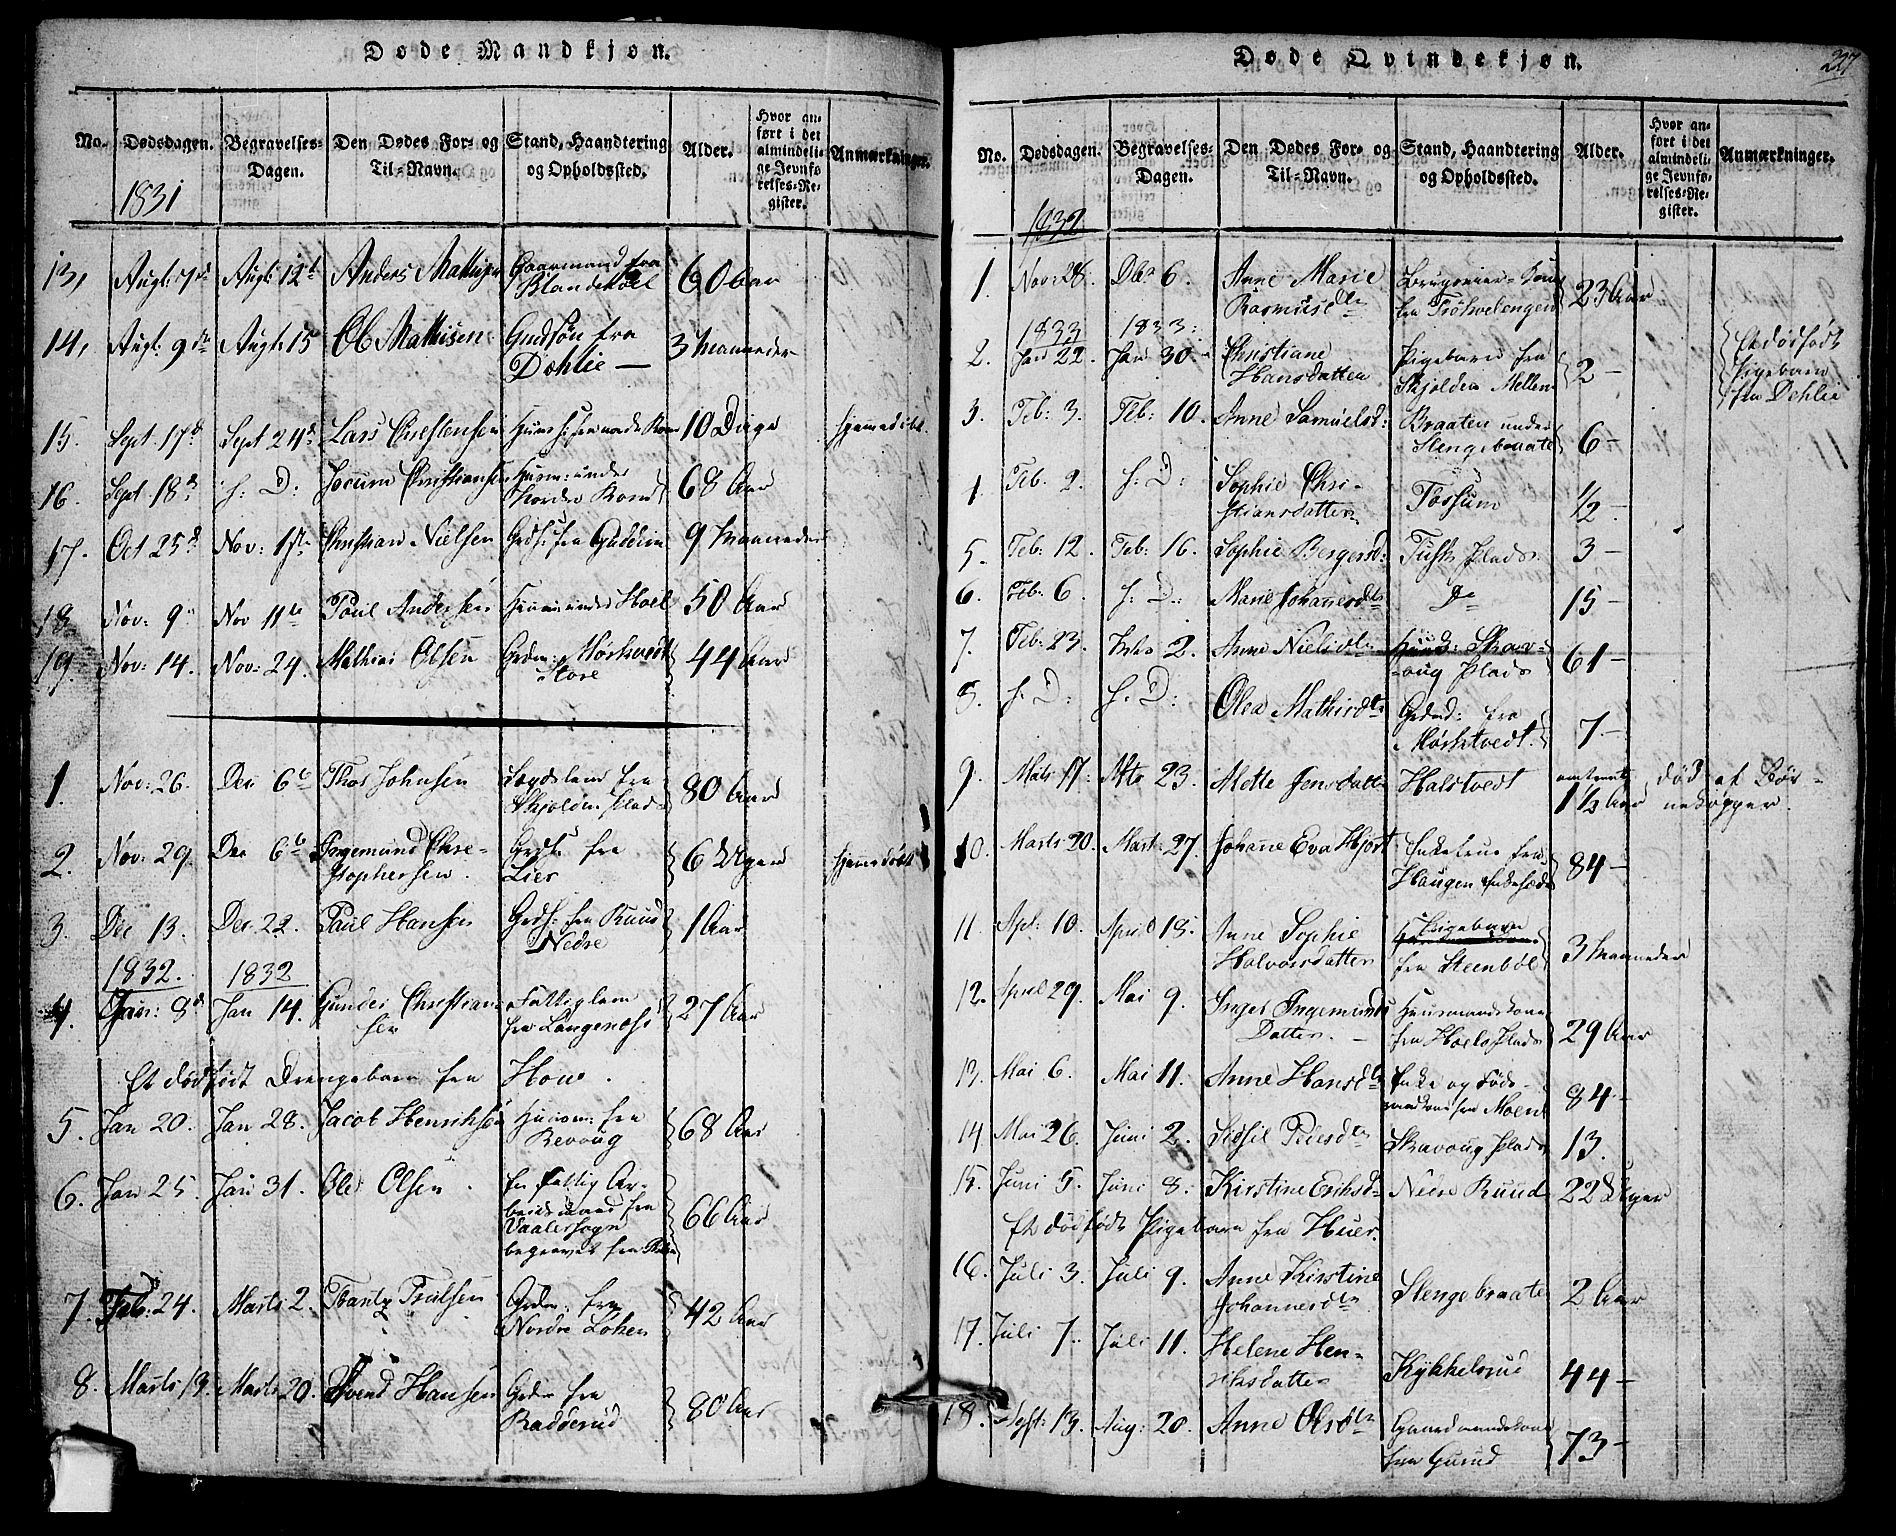 Døde Mandkjøn.
No. Dødsdagen. Begravelses-Dagen. Den Dødes For- og Til-Navn. Stand, Haandtering og Opholdssted. Alder. Hvor anført i det almindelige Jevnførelses-Register. Anmærkninger.
1831
13, Augt: 7de Augt 12te Anders Mathisen Gaarmand fra 60 Aar
14, Augt: 9de Augt: 15 Ole Mathisen Gmdsøn fra Dehlie — 3 Maaneder
15. Sept. 17de Sept 24de Lars Christensen 10 Dage hjemmedøbt.
16. Sept. 18de s: D: Jocum Christiansen Husm: under Nordre 68 Aar
17. Oct 25de Nov: 1ste Christian Nielsen Grds: fra 9 Maaneder
18. Nov: 9 Nov 11te Paul Andersen Huusm: under Hoel 50 Aar
19. Nov: 14. Nov: 24. Mathias Olsen Grdm: Mørkvedt Store 44 Aar
1. Nov: 26. Dec 6te Thor Johnsen Lægdslem fra Skjolden Plads 80 Aar
2. Nov: 29. Dec 6te Ingemund Christophersen. Grds: fra Lier 6 Uger hjemmedøbt
3. Dec 13. Dec. 22. Paul Hansen Grds: fra Ruud Nedre 1 Aar
1832. 1832
4. Jan: 8de Jan 14. Gunder Christiansen Fattiglem fra Langenæs 27 Aar
Et dødfødt Drengebarn fra Houe.
5. Jan 20. Jan 28. Jacob Henriksen Huusm: fra Revoug 68 Aar
6. Jan 25. Jan 31. Ole Olsen. En fattig Arbeidsmand fra Vaalersogn begravet fra 66 Aar
7. Feb: 24. Marts 2. Frantz Trulsen Grdm: fra Nordre Løken 42 Aar
8. Marts 13. Marts 20. Svend Hansen Grdm fra Radderud 80 Aar
Døde Qvindekjøn.
227
No. Dødsdagen. Begravelses-Dagen. Den Dødes For- og Til-Navn. Stand, Haandtering og Opholdssted. Alder. Hvor anført i det almindelige Jevnførelses-Register. Anmærkninger.
1832.
1. Nov: 28. Dbr 6. Anne Marie Rasmusdtr fra 23 Aar
1833 1833:
2. Jan 22. Jan 30. Christiane Hansdatter Pigebarn fra Skjolden Mellem 2 — Et dødfødt Pigebarn fra Dehlie
3. Feb: 3. Feb: 10. Anne Samuelsd: Braaten under Slengebraate 6 —
1. Feb: 2. s: D: Sophie Christiansdatter Fossum 1/2 —
5. Feb: 12. Feb: 16. Sophie Bergersd: Plads. 3 —
6. Feb: 6. s: D: Marie Johannesdtr Do 15 —
7. Feb: 23. Marts 2. Anne Nielsdtr Skavoug Plads 61 —
8. s: D: s: D: Olea Mathisdtr Grdmd: fra Mørkvedt. 7 —
9. Mats 17. Mts 23. Mette Jensdatter Halstvedt omtrent 1 1/2 Aar død af Børnekopper.
10. Marts 20. Mart: 27. Johanne Eva Hjort Enkefrue fra Haugen Enkesæde 84 —
11. Apl: 10. April 18. Anne Sophie Halvorsdatter Pigebarn fra Steenbøl 3 Maaneder
12. April 29. Mai 9. Inger Ingemunds Datter. — Huusmandskone fra Hoels Plads 29 Aar
13. Mai 6. Mai 11. Anne Hansdtr Enke og Føderaadskone fra Moen 84 —
14 Mai 26. Juni 2. Sidsil Pedersdtr Skavoug Plads 13.
15. Juni 5. Juni 8. Kirstine Eriksdtr Nedre Ruud 22 Uger
Et dødfødt Pigebarn fra Huer.
16. Juli 3. Juli 9. Anne Kirstine Johannesdtr Slengebraate 2 Aar
17. Juli 7. Juli 11. Helene Henriksdatter Kykkelsrud 44 —
18. 13. Aug: 20. Anne Olsdtr Gaardmandskone fra Guuud 73 —